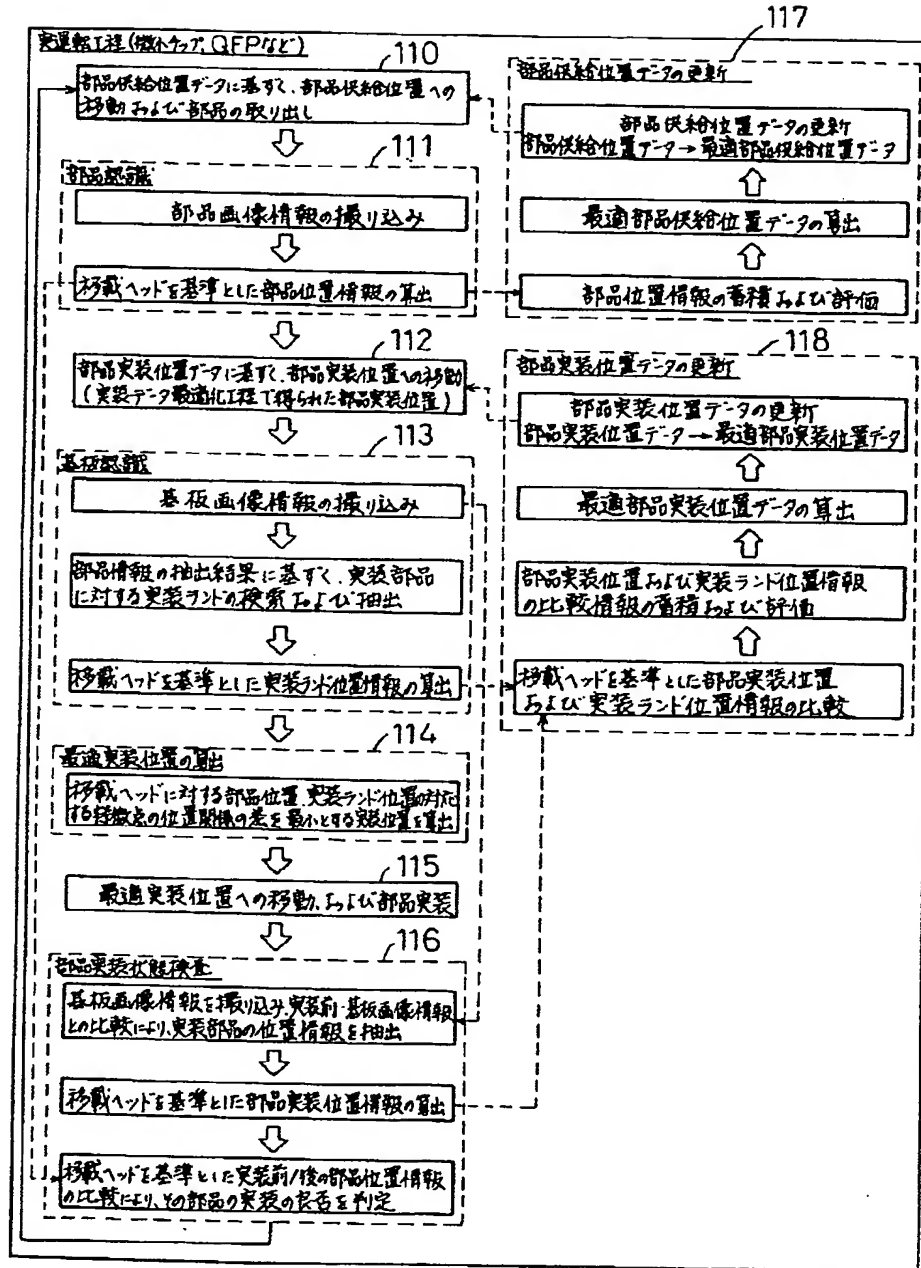 実運転工程(微小チップ,QFPなど)
110
部品供給位置データに基ずく、部品供給位置への
移動および部品の取り出し
111
部品認識
部品画像情報の撮り込み
移載ヘッドを基準とした部品位置情報の算出
112
部品実装位置データに基ずく、部品実装位置への移動
(実装データ最適化工程で得られた部品実装位置)
113
基板認識
基板画像情報の撮り込み
部品情報の抽出結果に基ずく、実装部品
に対する実装ランドの検索および抽出
移載ヘッドを基準とした実装ランド位置情報の算出
114
最適実装位置の算出
移載ヘッドに対する部品位置、実装ランド位置の対応
する特徴点の位置関係の差を最小とする実装位置を算出
115
最適実装位置への移動、および部品実装
116
部品実装状態検査
基板画像情報を撮り込み、実装前・基板画像情報
との比較により、実装部品の位置情報を抽出
移載ヘッドを基準とした部品実装位置情報の算出
移載ヘッドを基準とした実装前/後の部品位置情報
の比較により、その部品の実装の良否を判定
117
部品供給位置データの更新
部品供給位置データの更新
部品供給位置データ→最適部品供給位置データ
最適部品供給位置データの算出
部品位置情報の蓄積および評価
118
部品実装位置データの更新
部品実装位置データの更新
部品実装位置データ→最適部品実装位置データ
最適部品実装位置データの算出
部品実装位置および実装ランド位置情報
の比較情報の蓄積および評価
移載ヘッドを基準とした部品実装位置
および実装ランド位置情報の比較